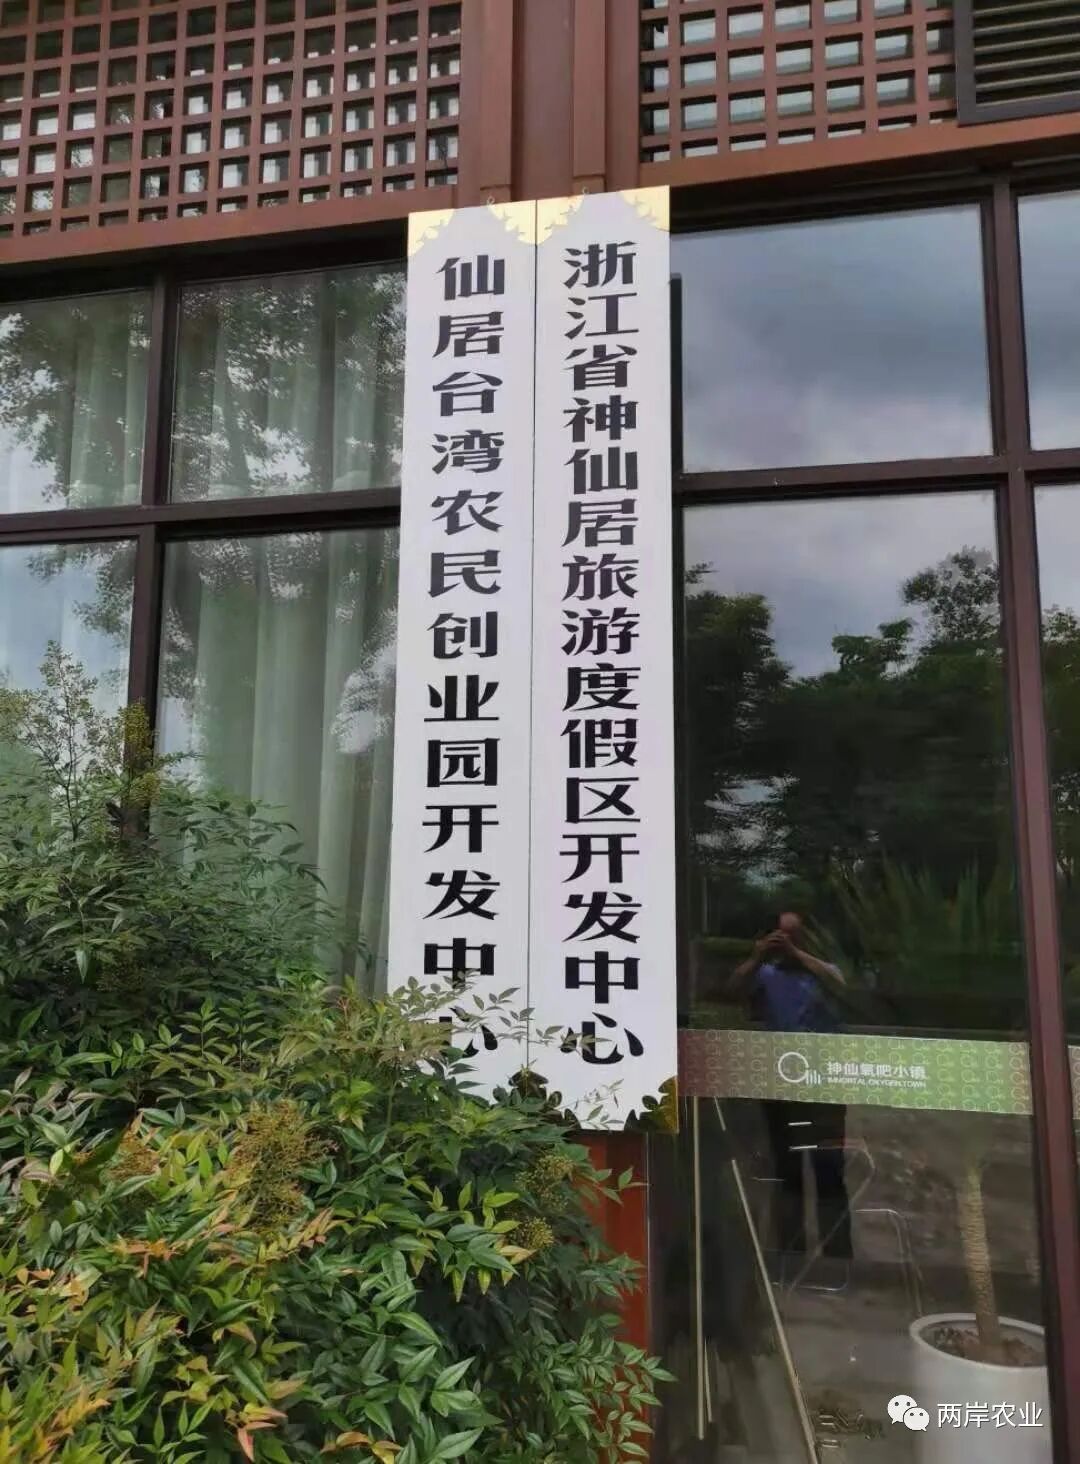 浙江省神仙居旅游度假区开发中心
仙居台湾农民创业园开发中心
仙
神仙氧吧小镇
IMMORTAL OXYGEN TOWN
两岸农业